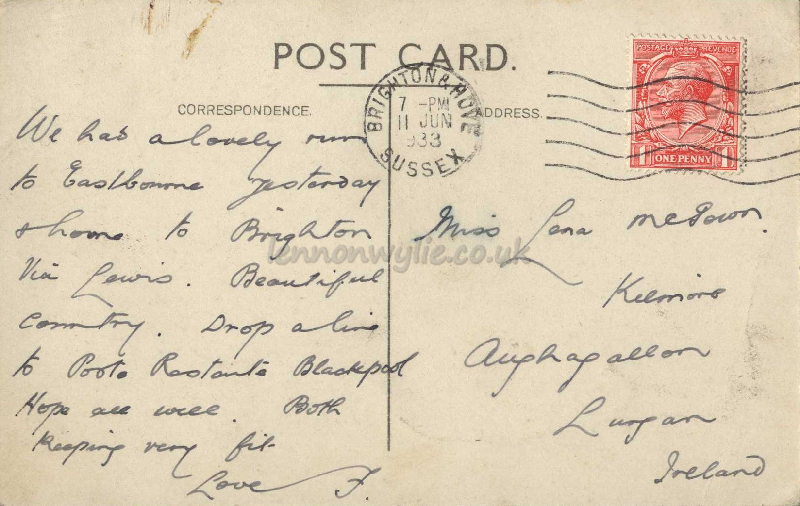 POST CARD.
CORRESPONDENCE.
ADDRESS.
BRIGHTON & HOVE
7 - PM
11 JUN
1933
SUSSEX
POSTAGE REVENUE
1 ONE PENNY 1
We had a lovely run
to Eastbourne yesterday
& home to Brighton
Via Lewis. Beautiful
Country. Drop a line
to Poste Restante Blackpool
Hope all well. Both
keeping very fit
Love F.
Miss Lena McGown.
Kilmore
Aughagallon
Lurgan
Ireland
lennonwylie.co.uk